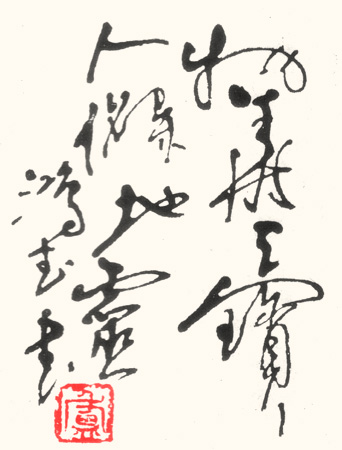 物華天寶
人傑地靈
鴻志書
盧